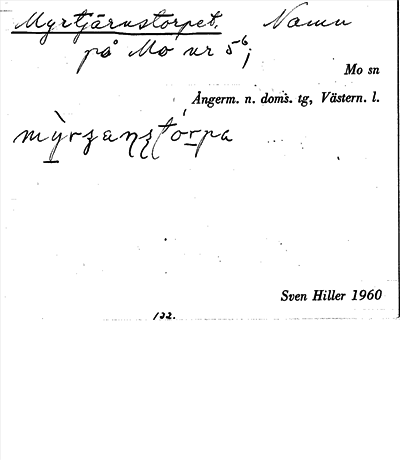 Myrtjärnstorpet. Namn
på Mo nr 5⁶;
Mo sn
Ångerm. n. doms. tg, Västern. l.
Sven Hiller 1960
122.